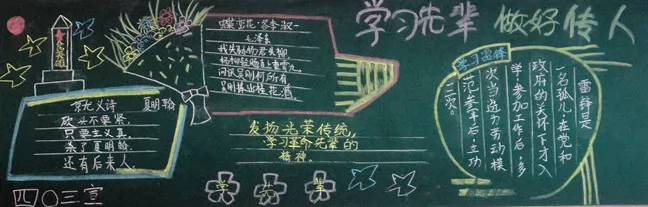 学习先辈 做好传人
蝶恋花·答李淑一
毛泽东
我失骄杨君失柳
杨柳轻飏直上重霄九
问讯吴刚何所有
吴刚捧出桂花酒
就义诗 夏明翰
砍头不要紧
只要主义真
杀了夏明翰
还有后来人
发扬光荣传统,
学习革命先辈的
精神。
学 先 辈
学习雷锋
雷锋是
一名孤儿,在党和
政府的关怀下才入
学,参加工作后,多
次当选为劳动模
范参军后,立功
三次。
四〇三宣